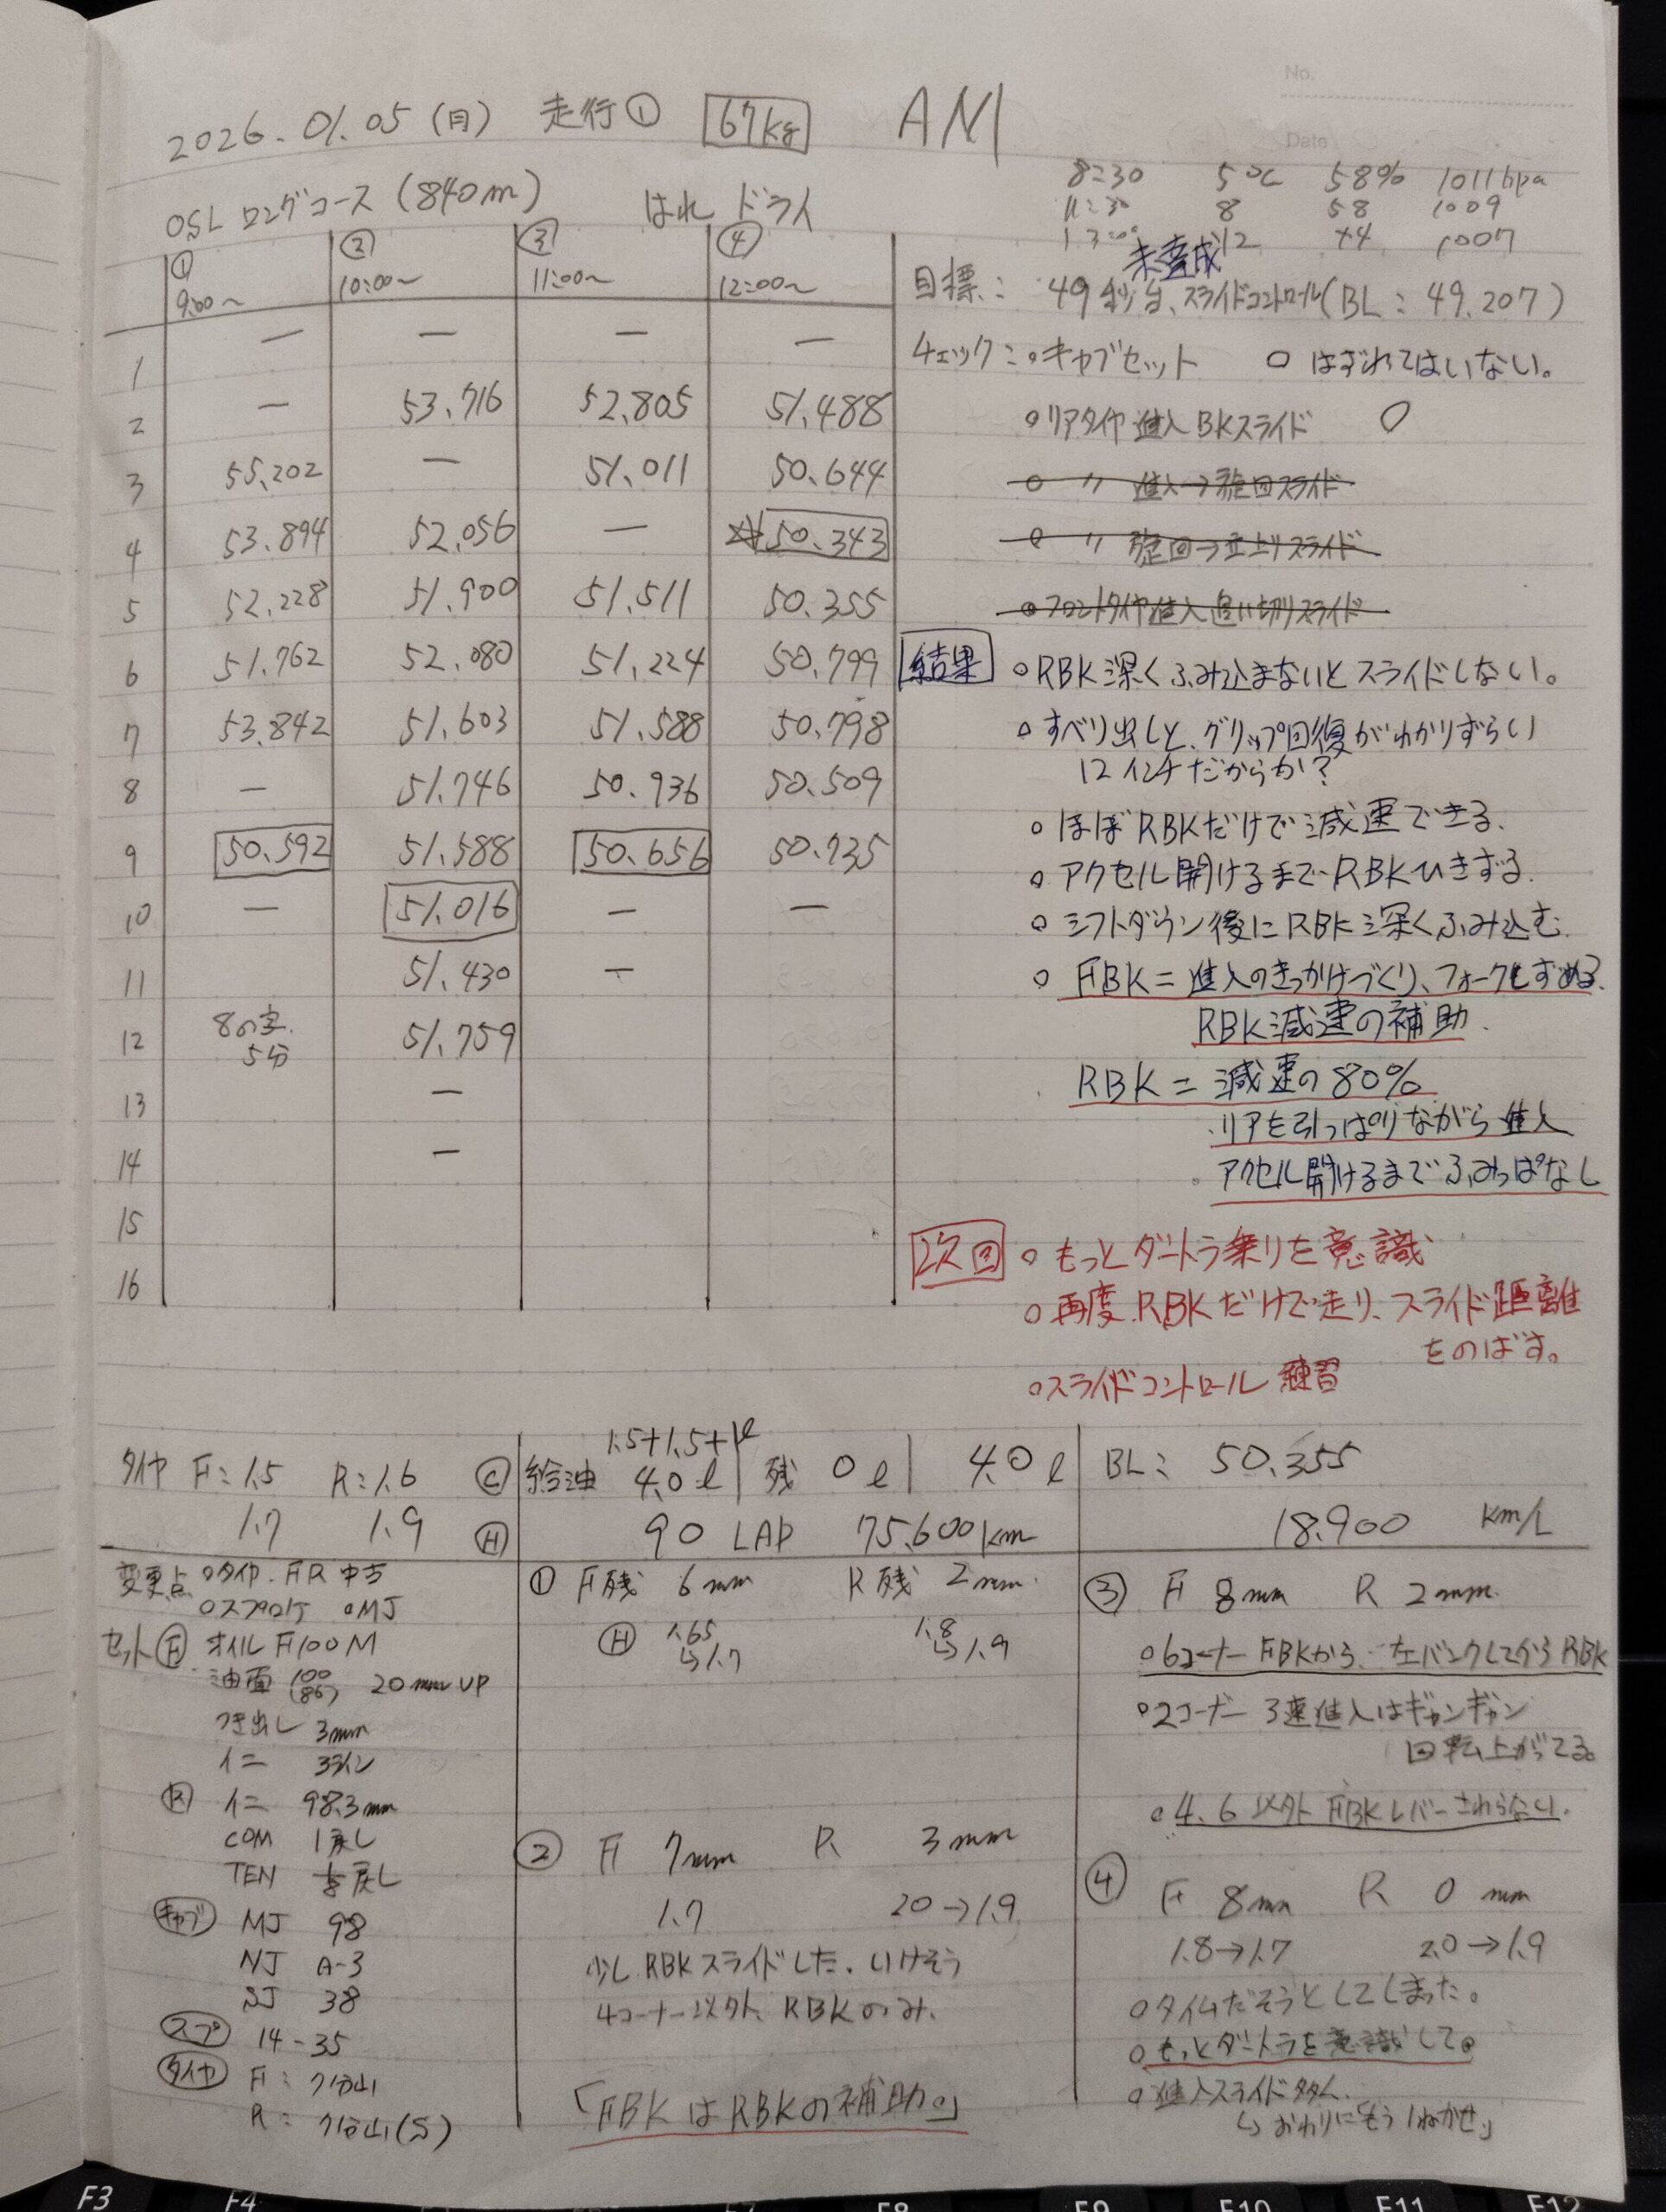 No.
Date
2026.01.05 (月) 走行① 67kg ANI
8:30 5℃ 58% 1011hpa
11:30 8 58 1009
13:00 12 44 1007
OSL ロングコース (840m) はれ ドライ
① ② ③ ④
9:00〜 10:00〜 11:00〜 12:00〜
1 — — — —
2 — 53.716 52.805 51.488
3 55.202 — 51.011 50.644
4 53.894 52.056 — ☆50.343
5 52.228 51.900 51.511 50.355
6 51.762 52.080 51.224 50.799
7 53.842 51.603 51.588 50.798
8 — 51.746 50.936 50.509
9 50.592 51.588 50.656 50.735
10 — 51.016 — —
11 51.430 —
12 8の字 5分 51.759
13 —
14 —
15
16
未達成
目標: 49秒台、スライドコントロール(BL: 49.207)
チェック:○キャブセット ○ はずれてはいない。
○リアタイヤ進入BKスライド ○
○ 〃 進入→旋回スライド
○ 〃 旋回→立上りスライド
○フロントタイヤ進入 追い切りスライド
結果 ○RBK深くふみ込まないとスライドしない。
○すべり出しと、グリップ回復がわかりずらい
12インチだからか?
○ほぼRBKだけで減速できる。
○アクセル開けるまでRBKひきずる。
○シフトダウン後にRBK深くふみ込む。
○FBK=進入のきっかけづくり、フォークしずめる。
RBK減速の補助。
RBK=減速の80%
・リアを引っぱりながら進入
・アクセル開けるまでふみっぱなし
次回 ○もっとダートラ乗りを意識
○再度RBKだけで走り、スライド距離
をのばす。
○スライドコントロール練習
タイヤ F:1.5 R:1.6 Ⓒ
1.7 1.9 Ⓗ
1.5+1.5+1ℓ
給油 4.0ℓ 残 0ℓ 4.0ℓ
90 LAP 75.600km
BL: 50.355
18.900 km/L
変更点 ○タイヤ.FR 中古
○スプロケ ○MJ
セット Ⓕ オイル F100M
油面 100 (86) 20mm UP
つき出し 3mm
イニ 3ライン
Ⓡ イニ 98.3mm
COM 1戻し
TEN 戻し
キャブ MJ 98
NJ A-3
SJ 38
スプ 14-35
タイヤ F: 7分山
R: 7分山(S)
① F残 6mm R残 2mm.
Ⓗ 1.65 1.8
↳1.7 ↳1.9
② F 7mm R 3mm
1.7 2.0→1.9
少しRBKスライドした。いけそう
4コーナー以外、RBKのみ.
「FBKはRBKの補助。」
③ F 8mm R 2mm.
○6コーナー FBKから、左バンクしてからRBK
○2コーナー 3速進入はギャンギャン
回転上がってる。
○4.6以外FBKレバーさわらない.
④ F 8mm R 0mm
1.8→1.7 2.0→1.9
○タイムだそうとしてしまった。
○もっとダートラを意識して。
○進入スライド
↳おわりに「もう1ねかせ」
F3
F4
F8
F9
F10
F11
F12